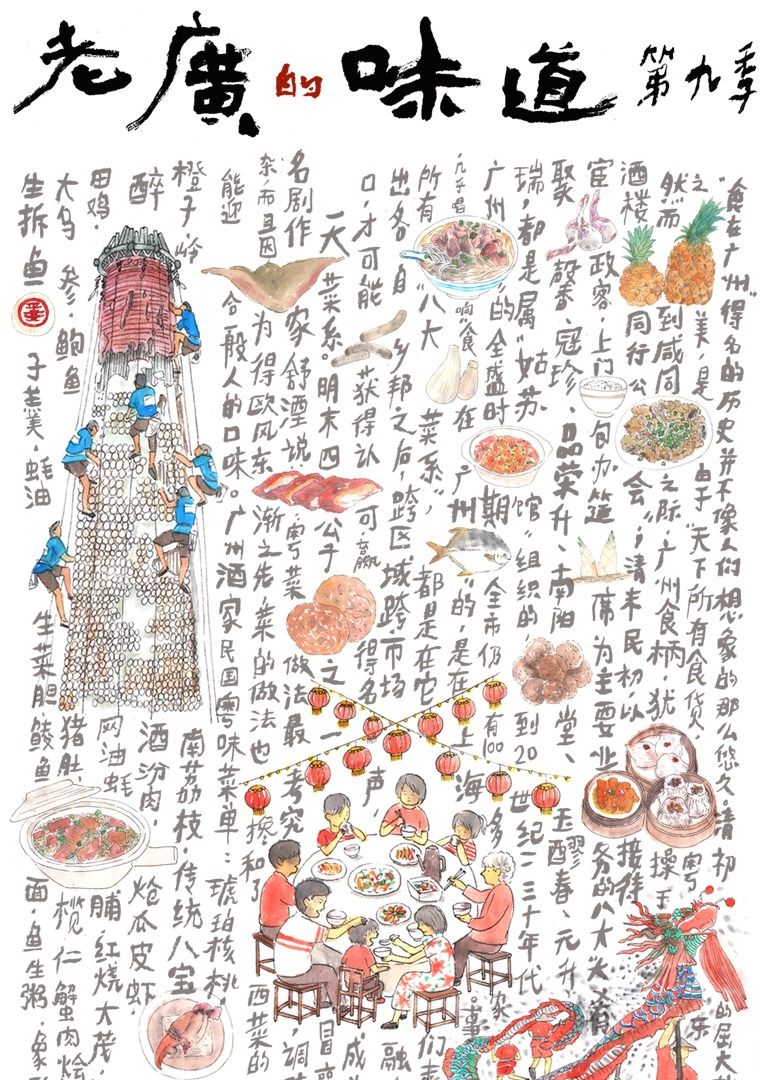 老廣的味道 第九季
"食在广州"得名的历史并不像人们想象的那么悠久,清初的屈大
之美,是由于"天下所有食货,粤东
然而到咸同之际,广州食柄,犹操
酒楼同行公会",清末民初,以接待
宦政客,上门包办筵席为主要业务的八大
聚馨、冠珍、品荣升、南阳堂、玉醪春、元升
瑞,都是属"姑苏馆"组织的,到20世纪二三十年代
广州的全盛时期全市仍有100多家
响"食在广州"的,是在上海
所有"八大菜系",都是在它们
出各自乡邦之后,跨区域跨市场融
口,才可能获得认可,赢得名声,成
一天菜系。明末四公子之一冒
名剧作家舒湮说:粤菜做法最考究,调
杂,而且因为得欧风东渐之先,菜的做法也掺和了西菜的
能迎合一般人的口味。广州酒家民国粤味菜单:琥珀核桃,
橙子,岭南荔枝,传统八宝
醉酒汾肉,炝瓜皮虾,
田鸡,网油蚝脯,红烧大茂,
大乌参,鲍鱼猪肚,榄仁蟹肉烩
生拆鱼子羹,蚝油生菜胆鲮鱼面,鱼生粥,象形